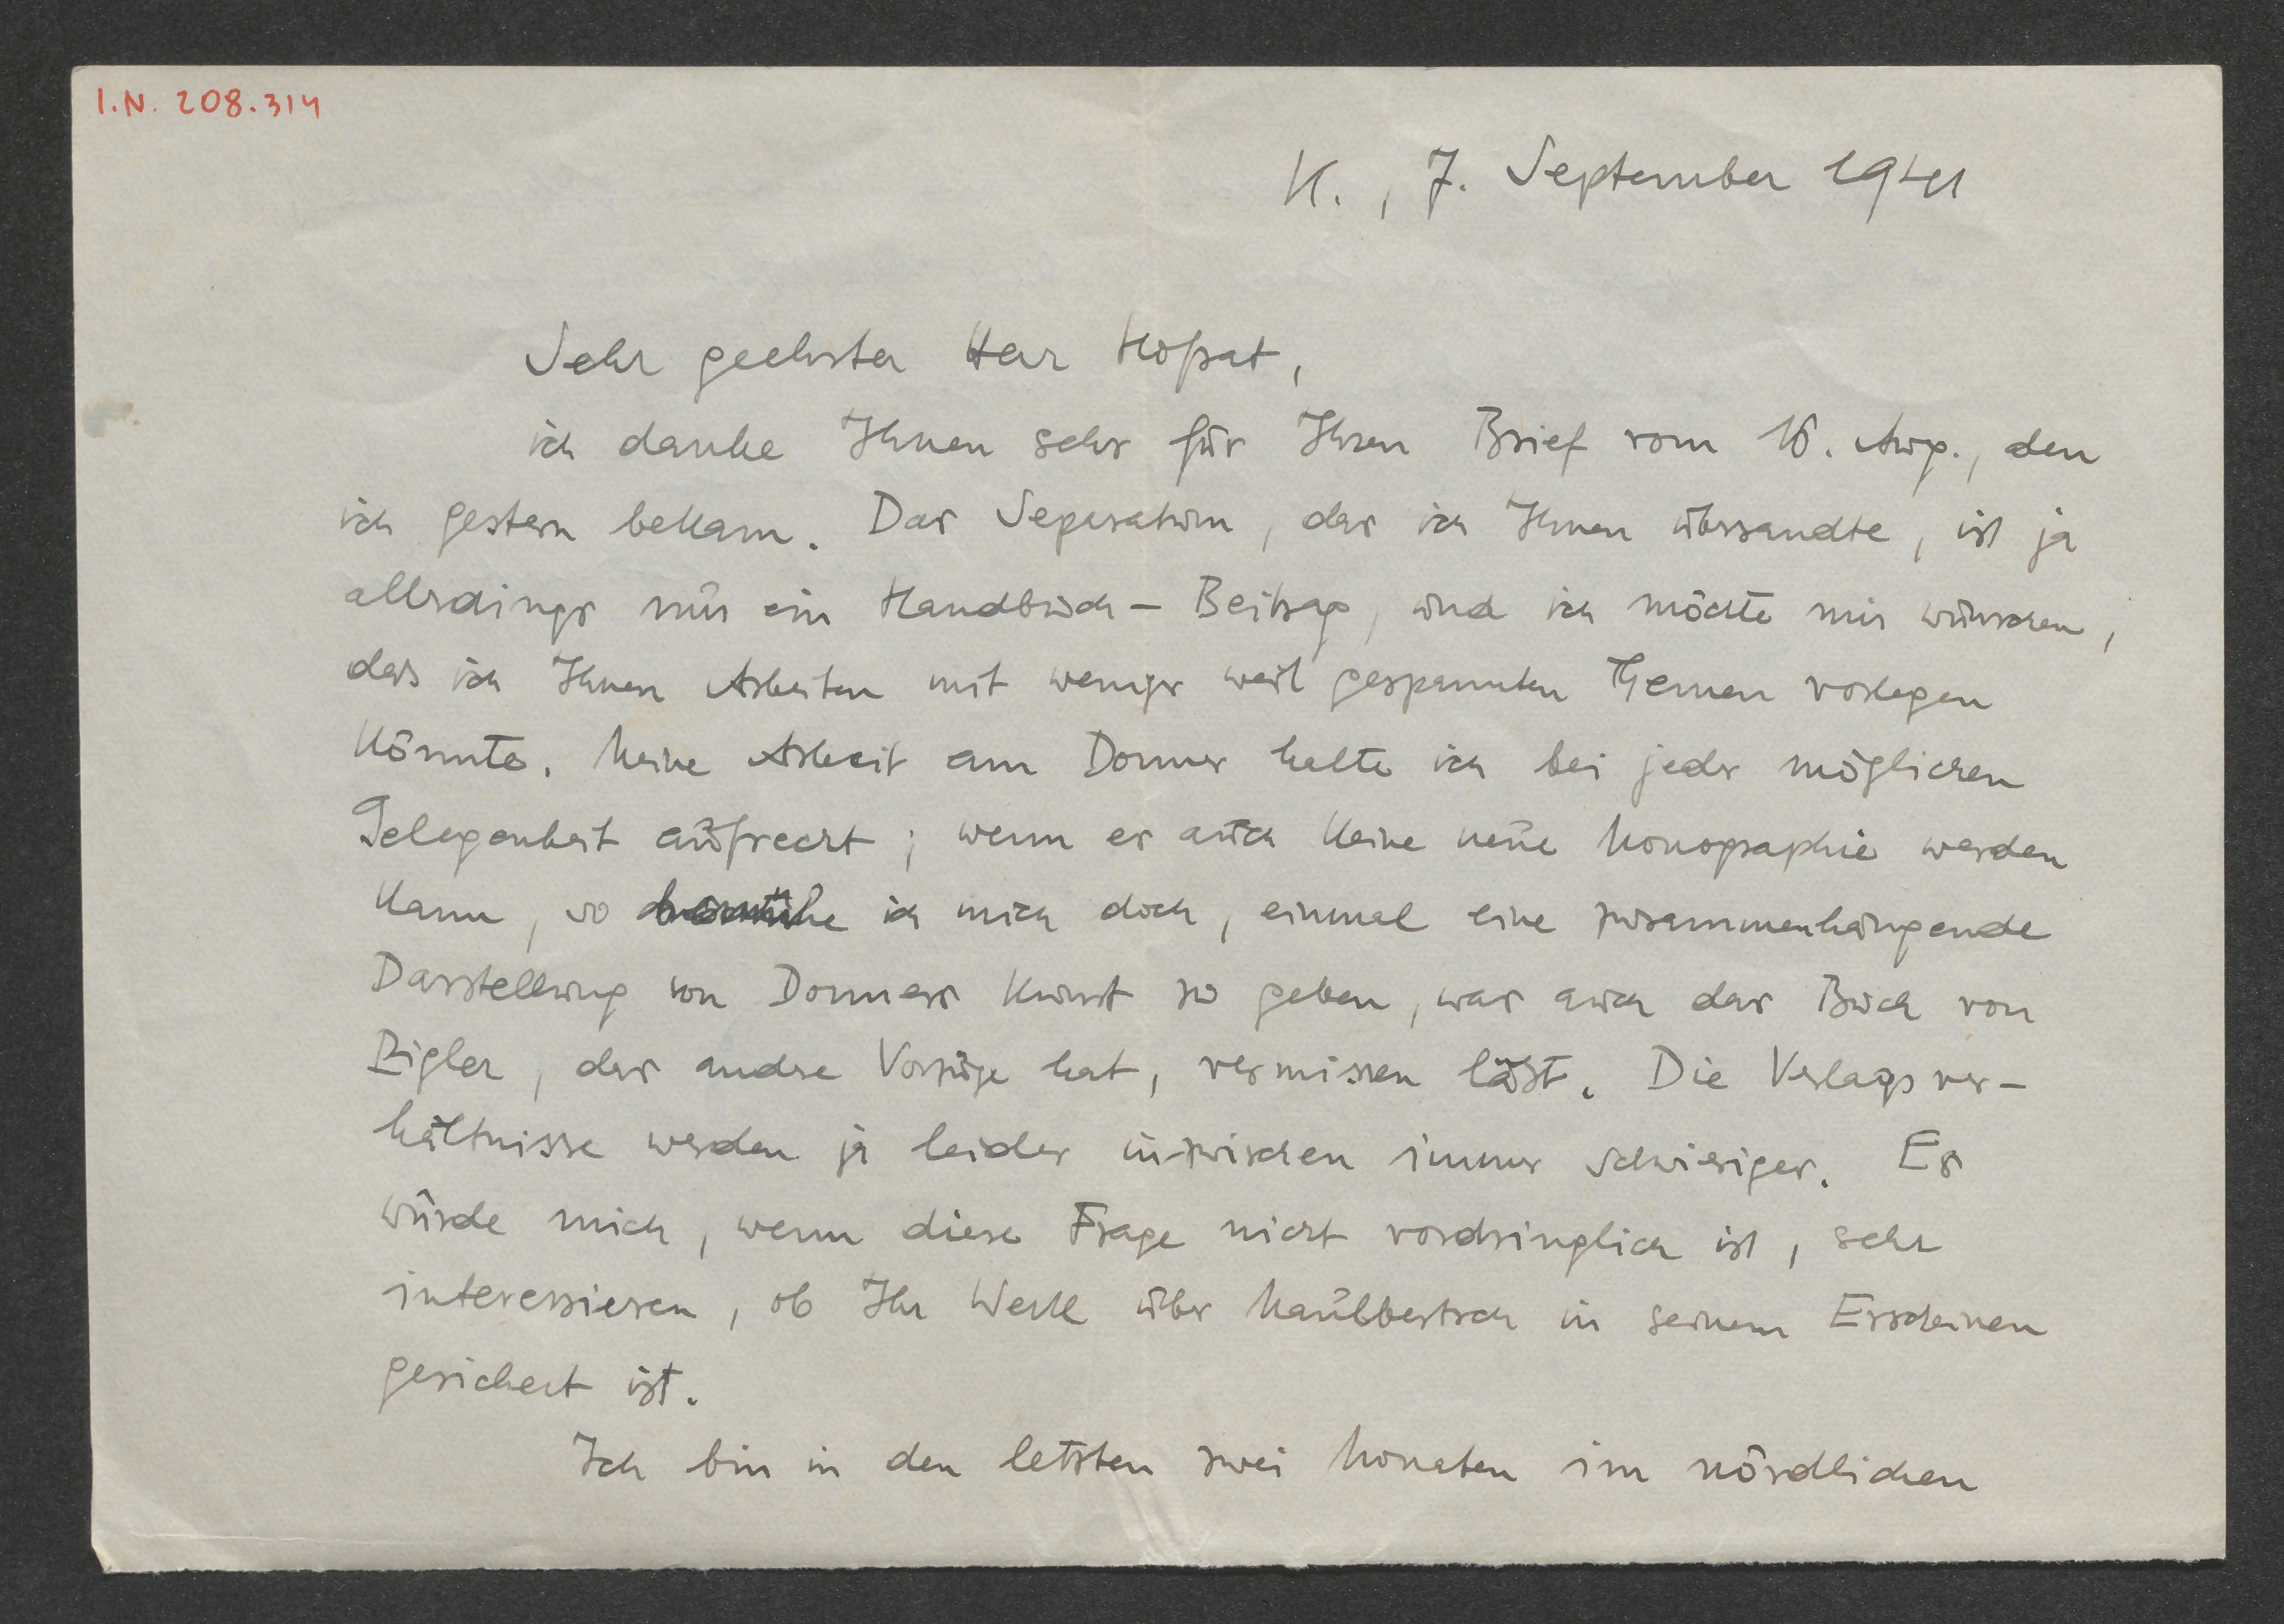 I.N. 208.314
K., 7. September 1941
Sehr geehrter Herr Hofrat,
ich danke Ihnen sehr für Ihren Brief vom 16. Aug., den
ich gestern bekam. Das Separatum, das ich Ihnen übersandte, ist ja
allerdings nur ein Handbuch - Beitrag, und ich möchte mir wünschen,
dass ich Ihnen Arbeiten mit weniger weit gespannten Themen vorlegen
könnte. Meine Arbeit am Donner halte ich bei jeder möglichen
Gelegenheit aufrecht; wenn es auch keine neue Monographie werden
kann, so bemühe ich mich doch, einmal eine zusammenhängende
Darstellung von Donners Kunst zu geben, was auch das Buch von
Pigler, das andre Vorzüge hat, vermissen lässt. Die Verlagsver-
hältnisse werden ja leider inzwischen immer schwieriger. Es
würde mich, wenn diese Frage nicht vordringlich ist, sehr
interessieren, ob Ihr Werk über Maulbertsch in seinem Erscheinen
gesichert ist.
Ich bin in den letzten zwei Monaten im nördlichen